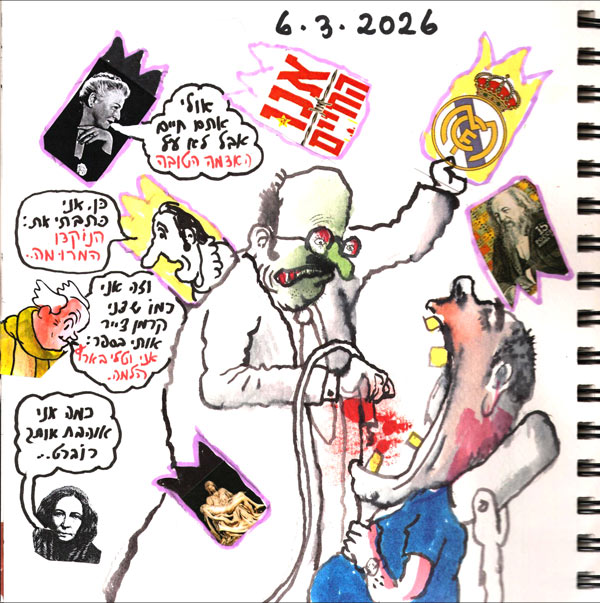 6.3.2026
אולי
אתם חיים
אבל לא על
האדמה הטובה
אנו
החיים
כן. אני
כתבתי את:
המרומה..
וזה אני
כמו שדני
קרמן צייר
אותי בספר:
אני וטלי בארץ
הלמה.
כמה אני
אוהבת אותך
רוברט..